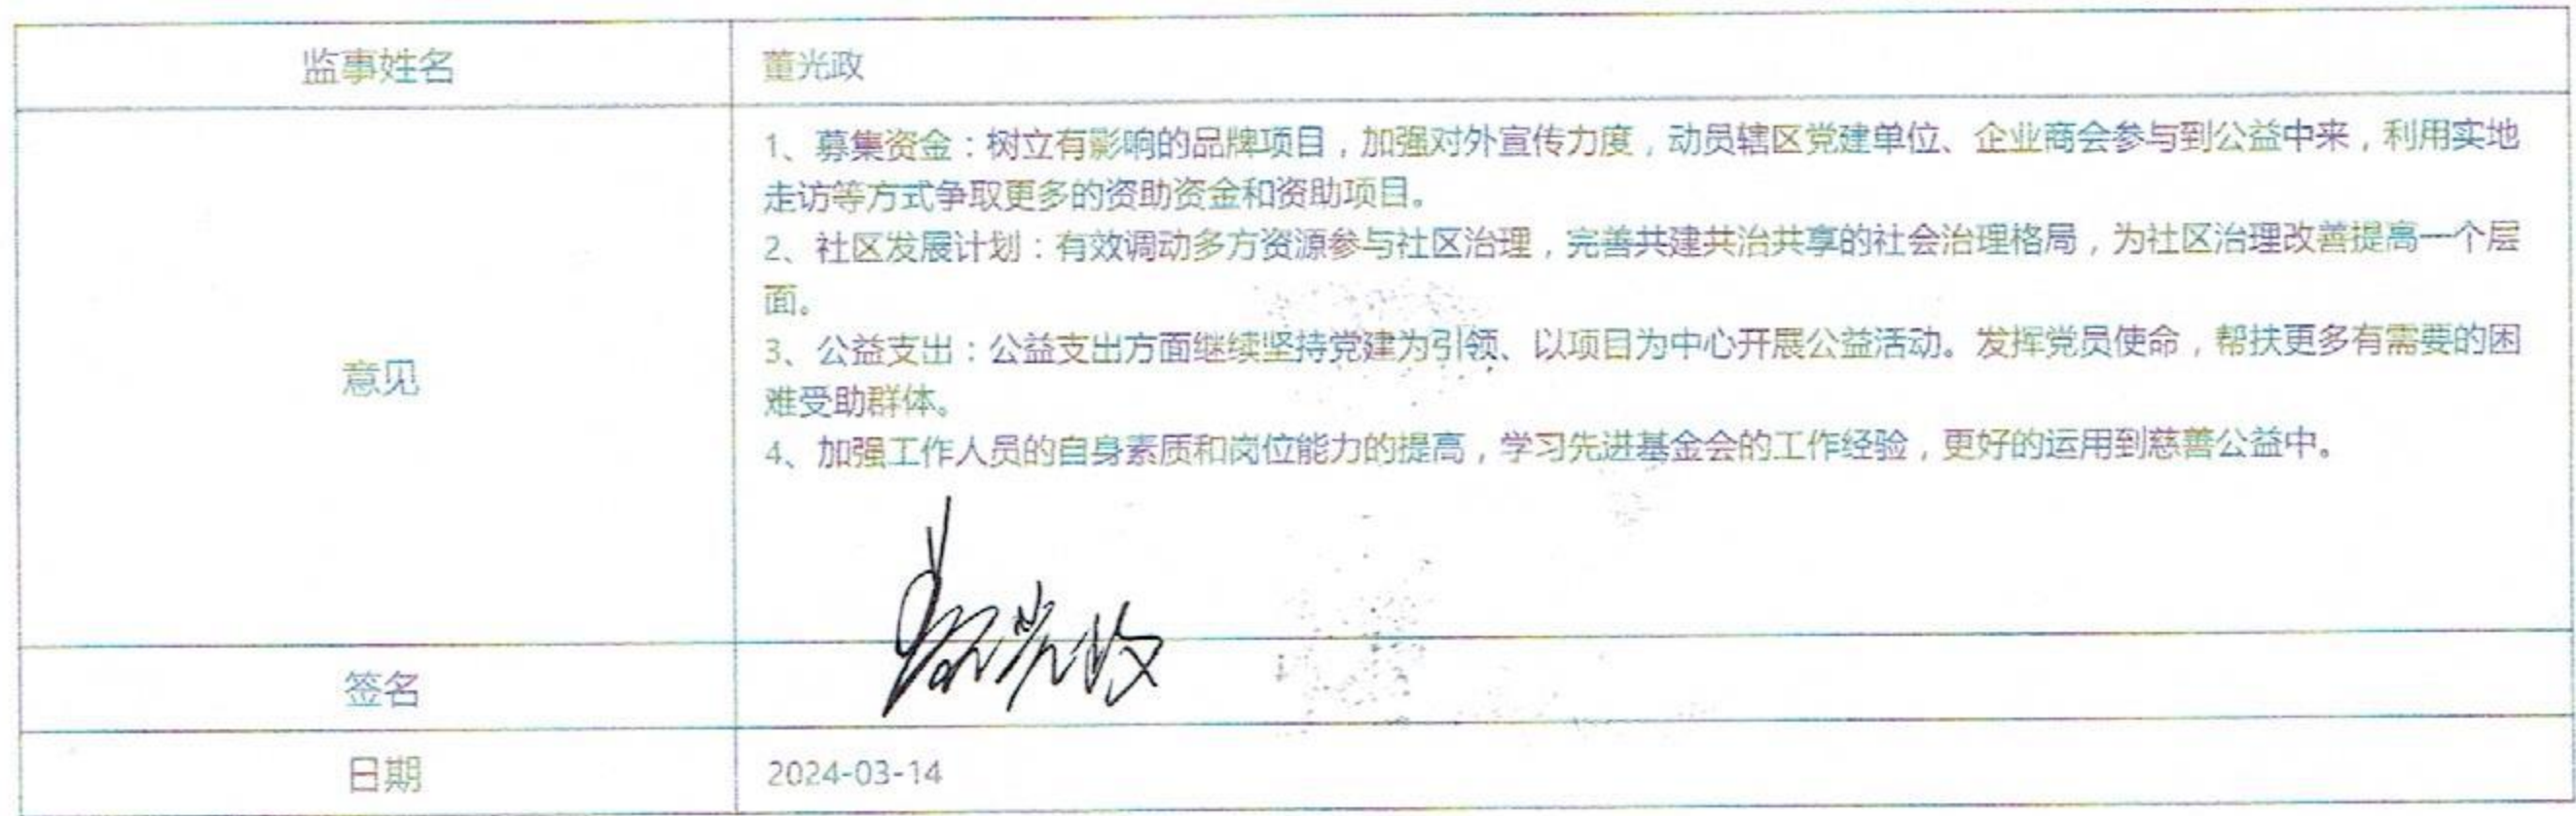 监事姓名
董光政
意见
1、募集资金：树立有影响的品牌项目，加强对外宣传力度，动员辖区党建单位、企业商会参与到公益中来，利用实地
走访等方式争取更多的资助资金和资助项目。
2、社区发展计划：有效调动多方资源参与社区治理，完善共建共治共享的社会治理格局，为社区治理改善提高一个层
面。
3、公益支出：公益支出方面继续坚持党建为引领、以项目为中心开展公益活动。发挥党员使命，帮扶更多有需要的困
难受助群体。
4、加强工作人员的自身素质和岗位能力的提高，学习先进基金会的工作经验，更好的运用到慈善公益中。
签名
董光政
日期
2024-03-14